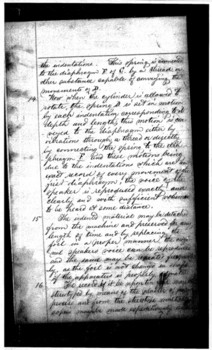 the indentations. This spring is connected
to the diaphragm F of G. by a thread or
other substance capable of conveying the
movements of D.
14 Now when the cylinder is allowed to
rotate, the spring D is set in motion
by each indentation corresponding to its
depth and length; this motion is con-
veyed to the diaphragm either by
vibrations through a thread or directly
by connecting the spring to the dia-
phragm F. And these motions being
due to the indentations which are an
exact record of every movement of the
first diaphragm, the voice of the
speaker is reproduced exactly and
clearly and with sufficient volume
to be heard at some distance.
15 The indented material may be detached
from the machine and preserved for any
length of time and by replacing the
foil in a proper manner the origi-
nal speakers voice can be reproduced
and the same may be repeated frequently
as the foil is not changed in shape
if the apparatus is properly adjusted.
16 The record if it be upon tin foil may be
stereotyped by means of the plaster of paris
process and from the stereotype multiple
copies may be made